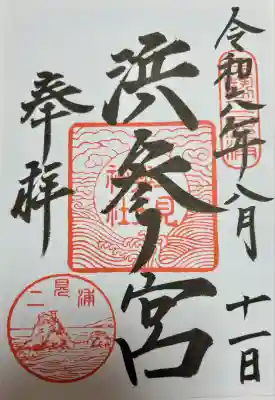 令和六年八月十一日
浜参宮
奉拝
二見浦